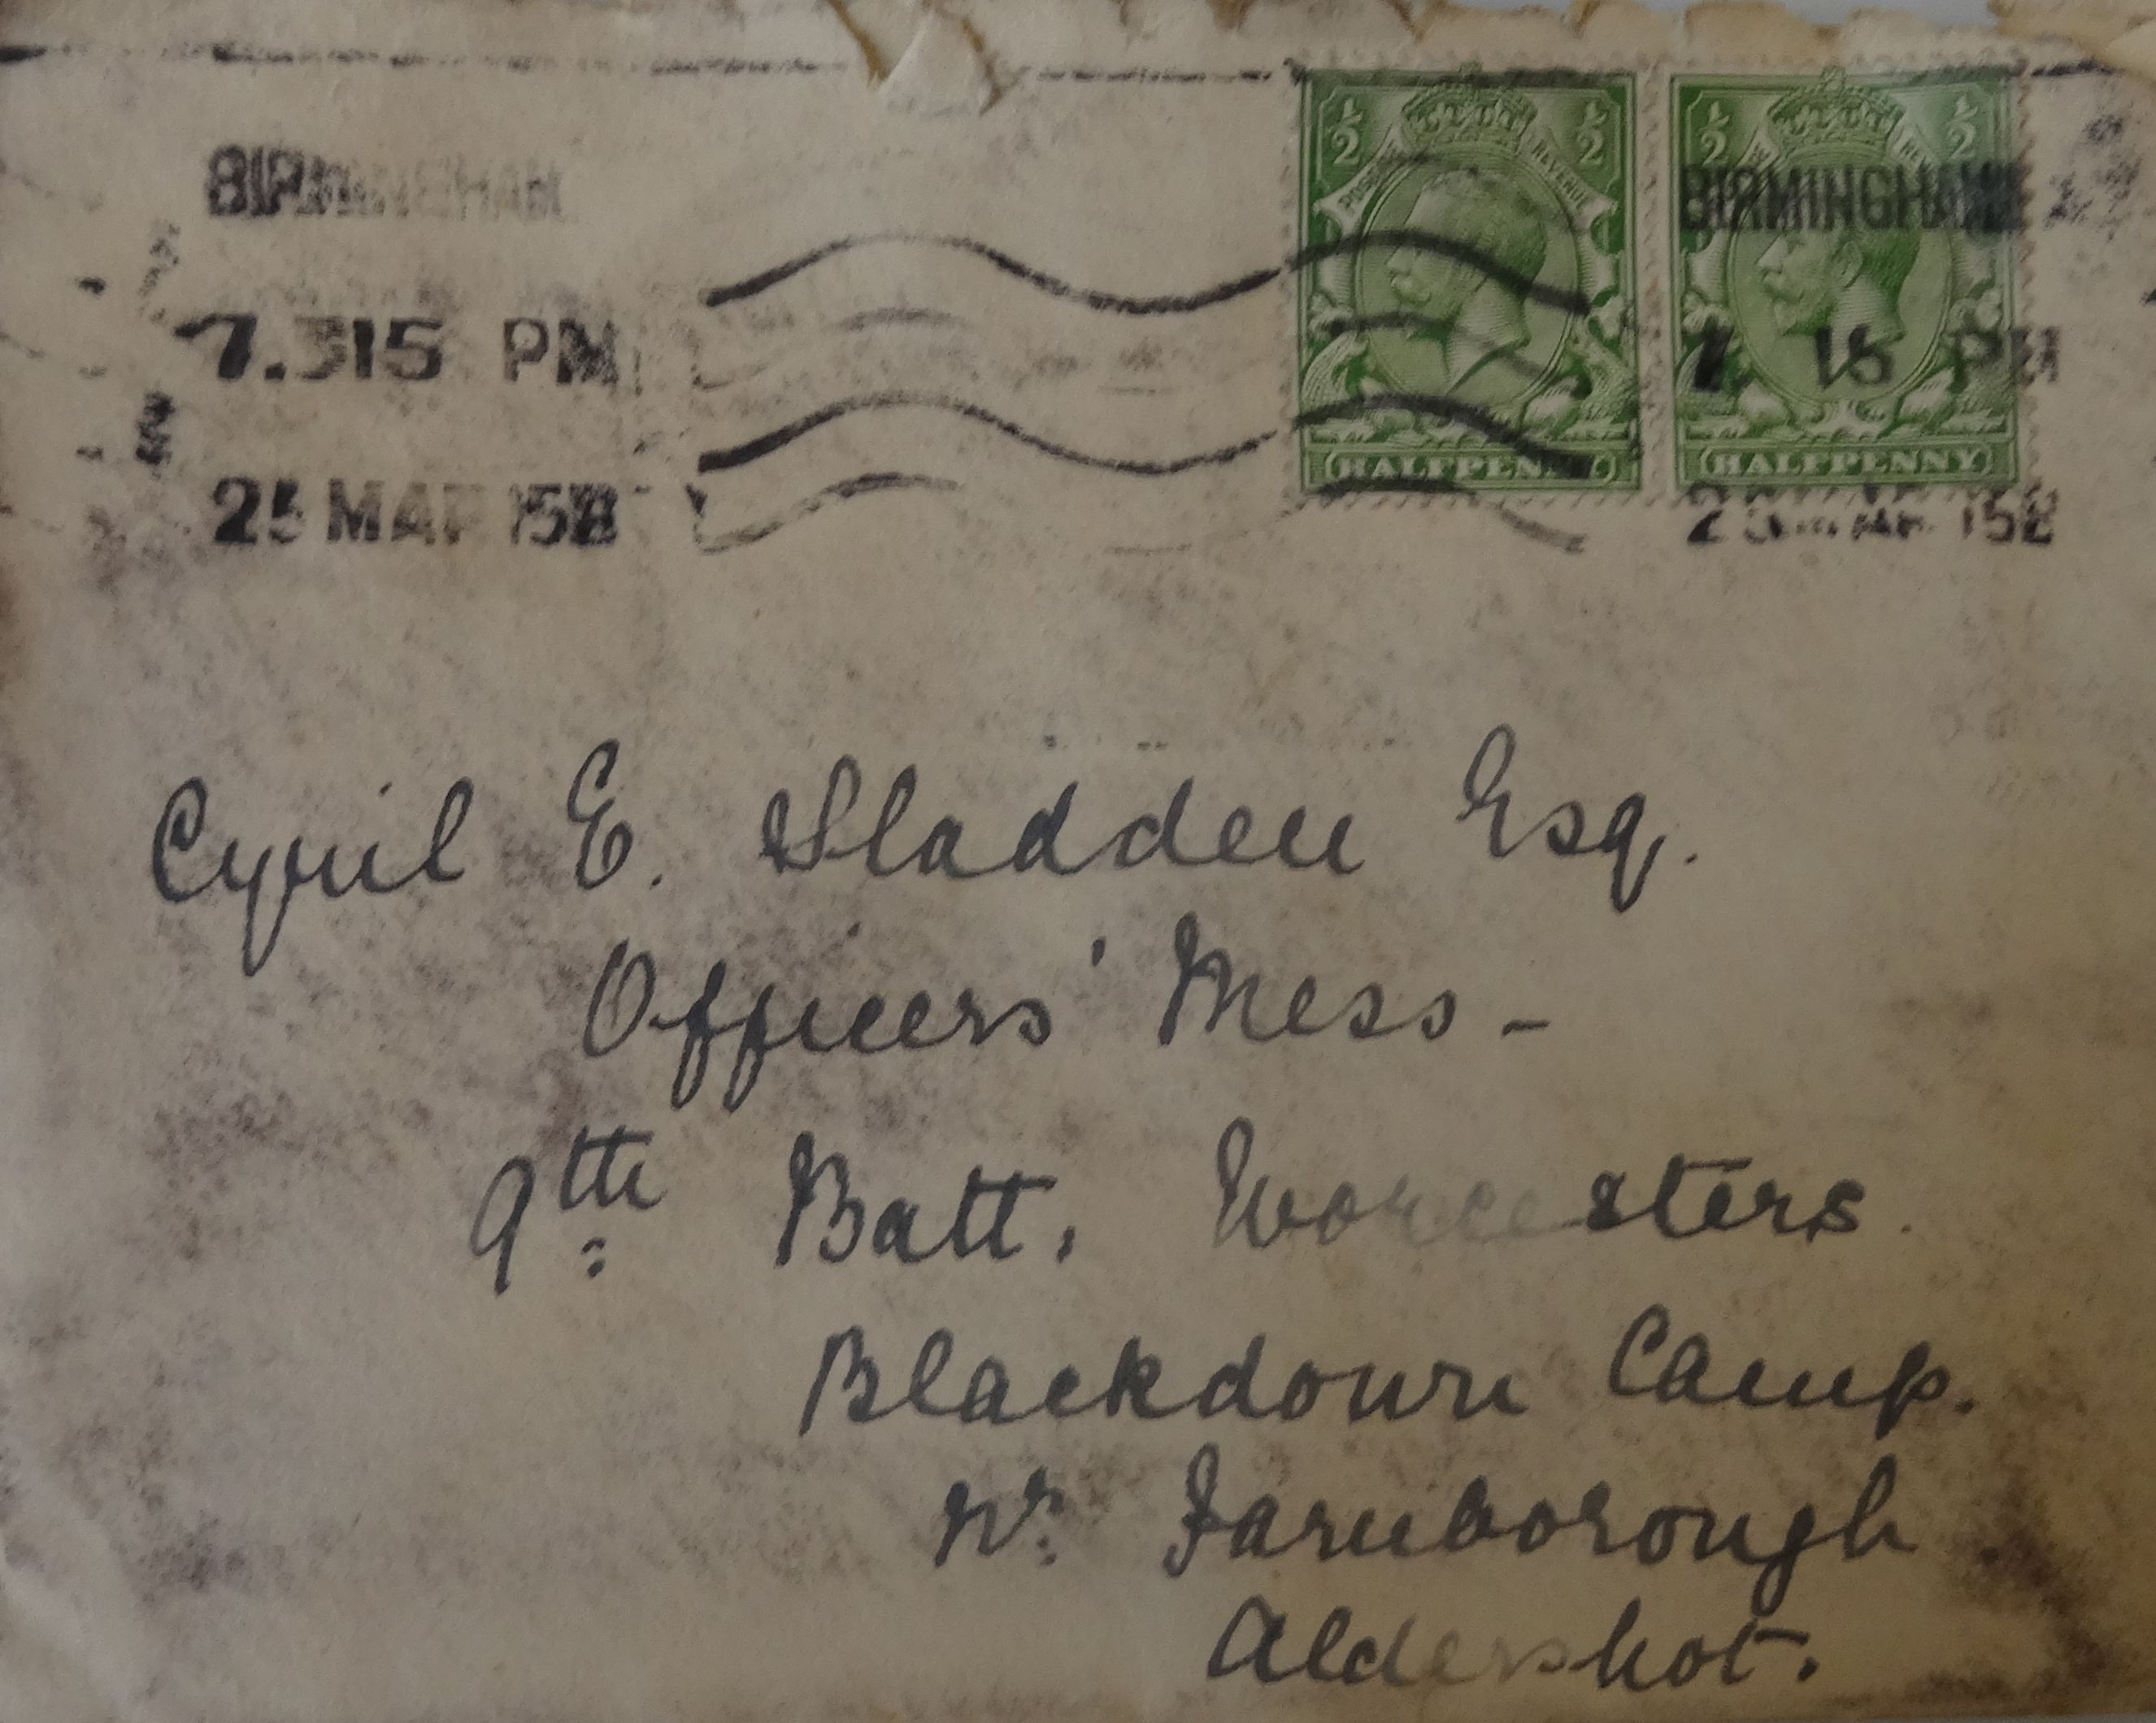 BIRMINGHAM
7.15 PM
25 MAR 15
½ ½
POSTAGE REVENUE
HALFPENNY
½ ½
HALFPENNY
BIRMINGHAM
7. 15 PM
25 MAR 15
Cyril E. Sladden Esq.
Officers' Mess -
9th Batt. Worcesters.
Blackdown Camp.
Nr. Farnborough
Aldershot.